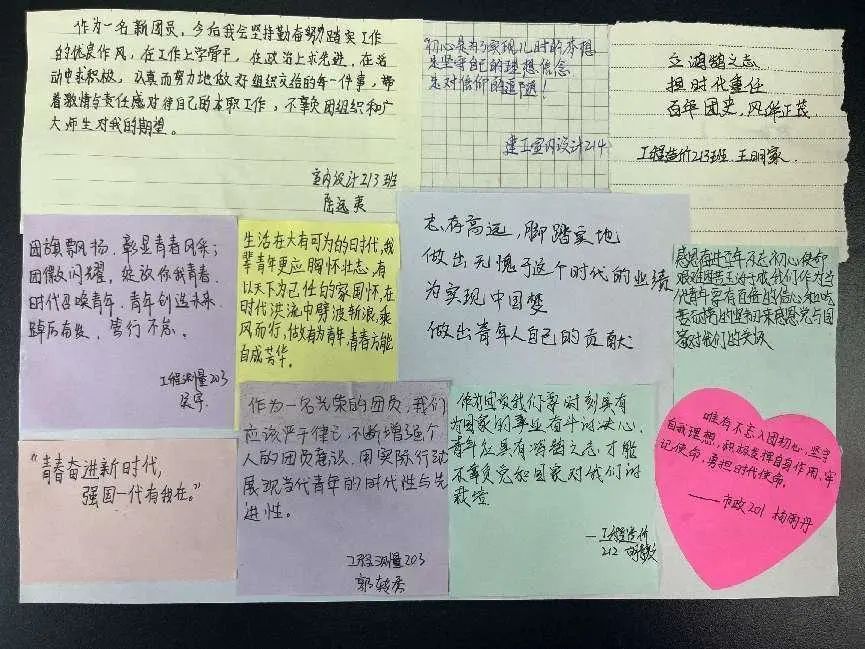 作为一名新团员，今后我会坚持勤奋努力踏实工作
的优良作风，在工作上学骨干，在政治上求先进，在活
动中求积极，认真而努力地做好组织交给的每一件事，带
着激情与责任感对待自己的本职工作，不辜负团组织和广
大师生对我的期望。
室内设计213班
初心是为了实现儿时的梦想
是坚守自己的理想信念
是对信仰的追随！
建工室内设计214
立鸿鹄之志
担时代重任
百年团史，风华正茂
工程造价213班 王明家
团旗飘扬，彰显青春风采；
团徽闪耀，绽放你我青春。
时代召唤青年，青年创造未来
踔厉奋发，笃行不怠。
工程测量203
吴宇
生活在大有可为的的时代，我
辈青年更应胸怀壮志，有
以天下为己任的家国怀，在
时代洪流中劈波新浪，乘
风而行，做有为青年，青春方能
自成芳华。
志存高远，脚踏实地
做出无愧于这个时代的业绩
为实现中国梦
做出青年人自己的贡献
艰难困苦玉汝于成我们作为当
代青年要有百倍的信心和吃
家对我们的关怀
"青春奋进新时代，
强国一代有我在。"
作为一名光荣的团员，我们
应该严于律己，不断增强个
人的团员意识，用实际行动
展现当代青年的时代性与先
进性。
工程测量203
郭转香
作为团员我们要时刻具有
为国家的事业奋斗的决心，
青年应具有鸿鹄之志才能
不辜负党和国家对我们的
栽培
—工程造价
212
唯有不忘入团初心，坚守
自我理想，积极发挥自身作用，牢
记使命，勇担时代使命。
——市政201 杨雨丹